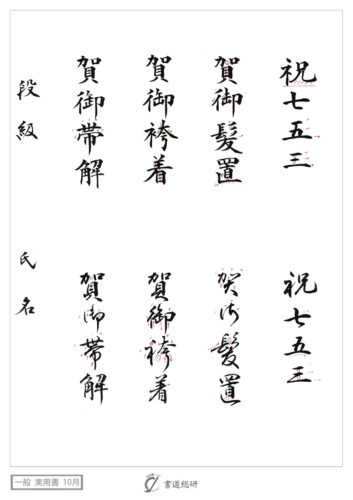 祝七五三
賀御髪置
賀御袴着
賀御帯解
段級
祝七五三
賀御髪置
賀御袴着
賀御帯解
氏名
一般 実用書 10月
書道総研